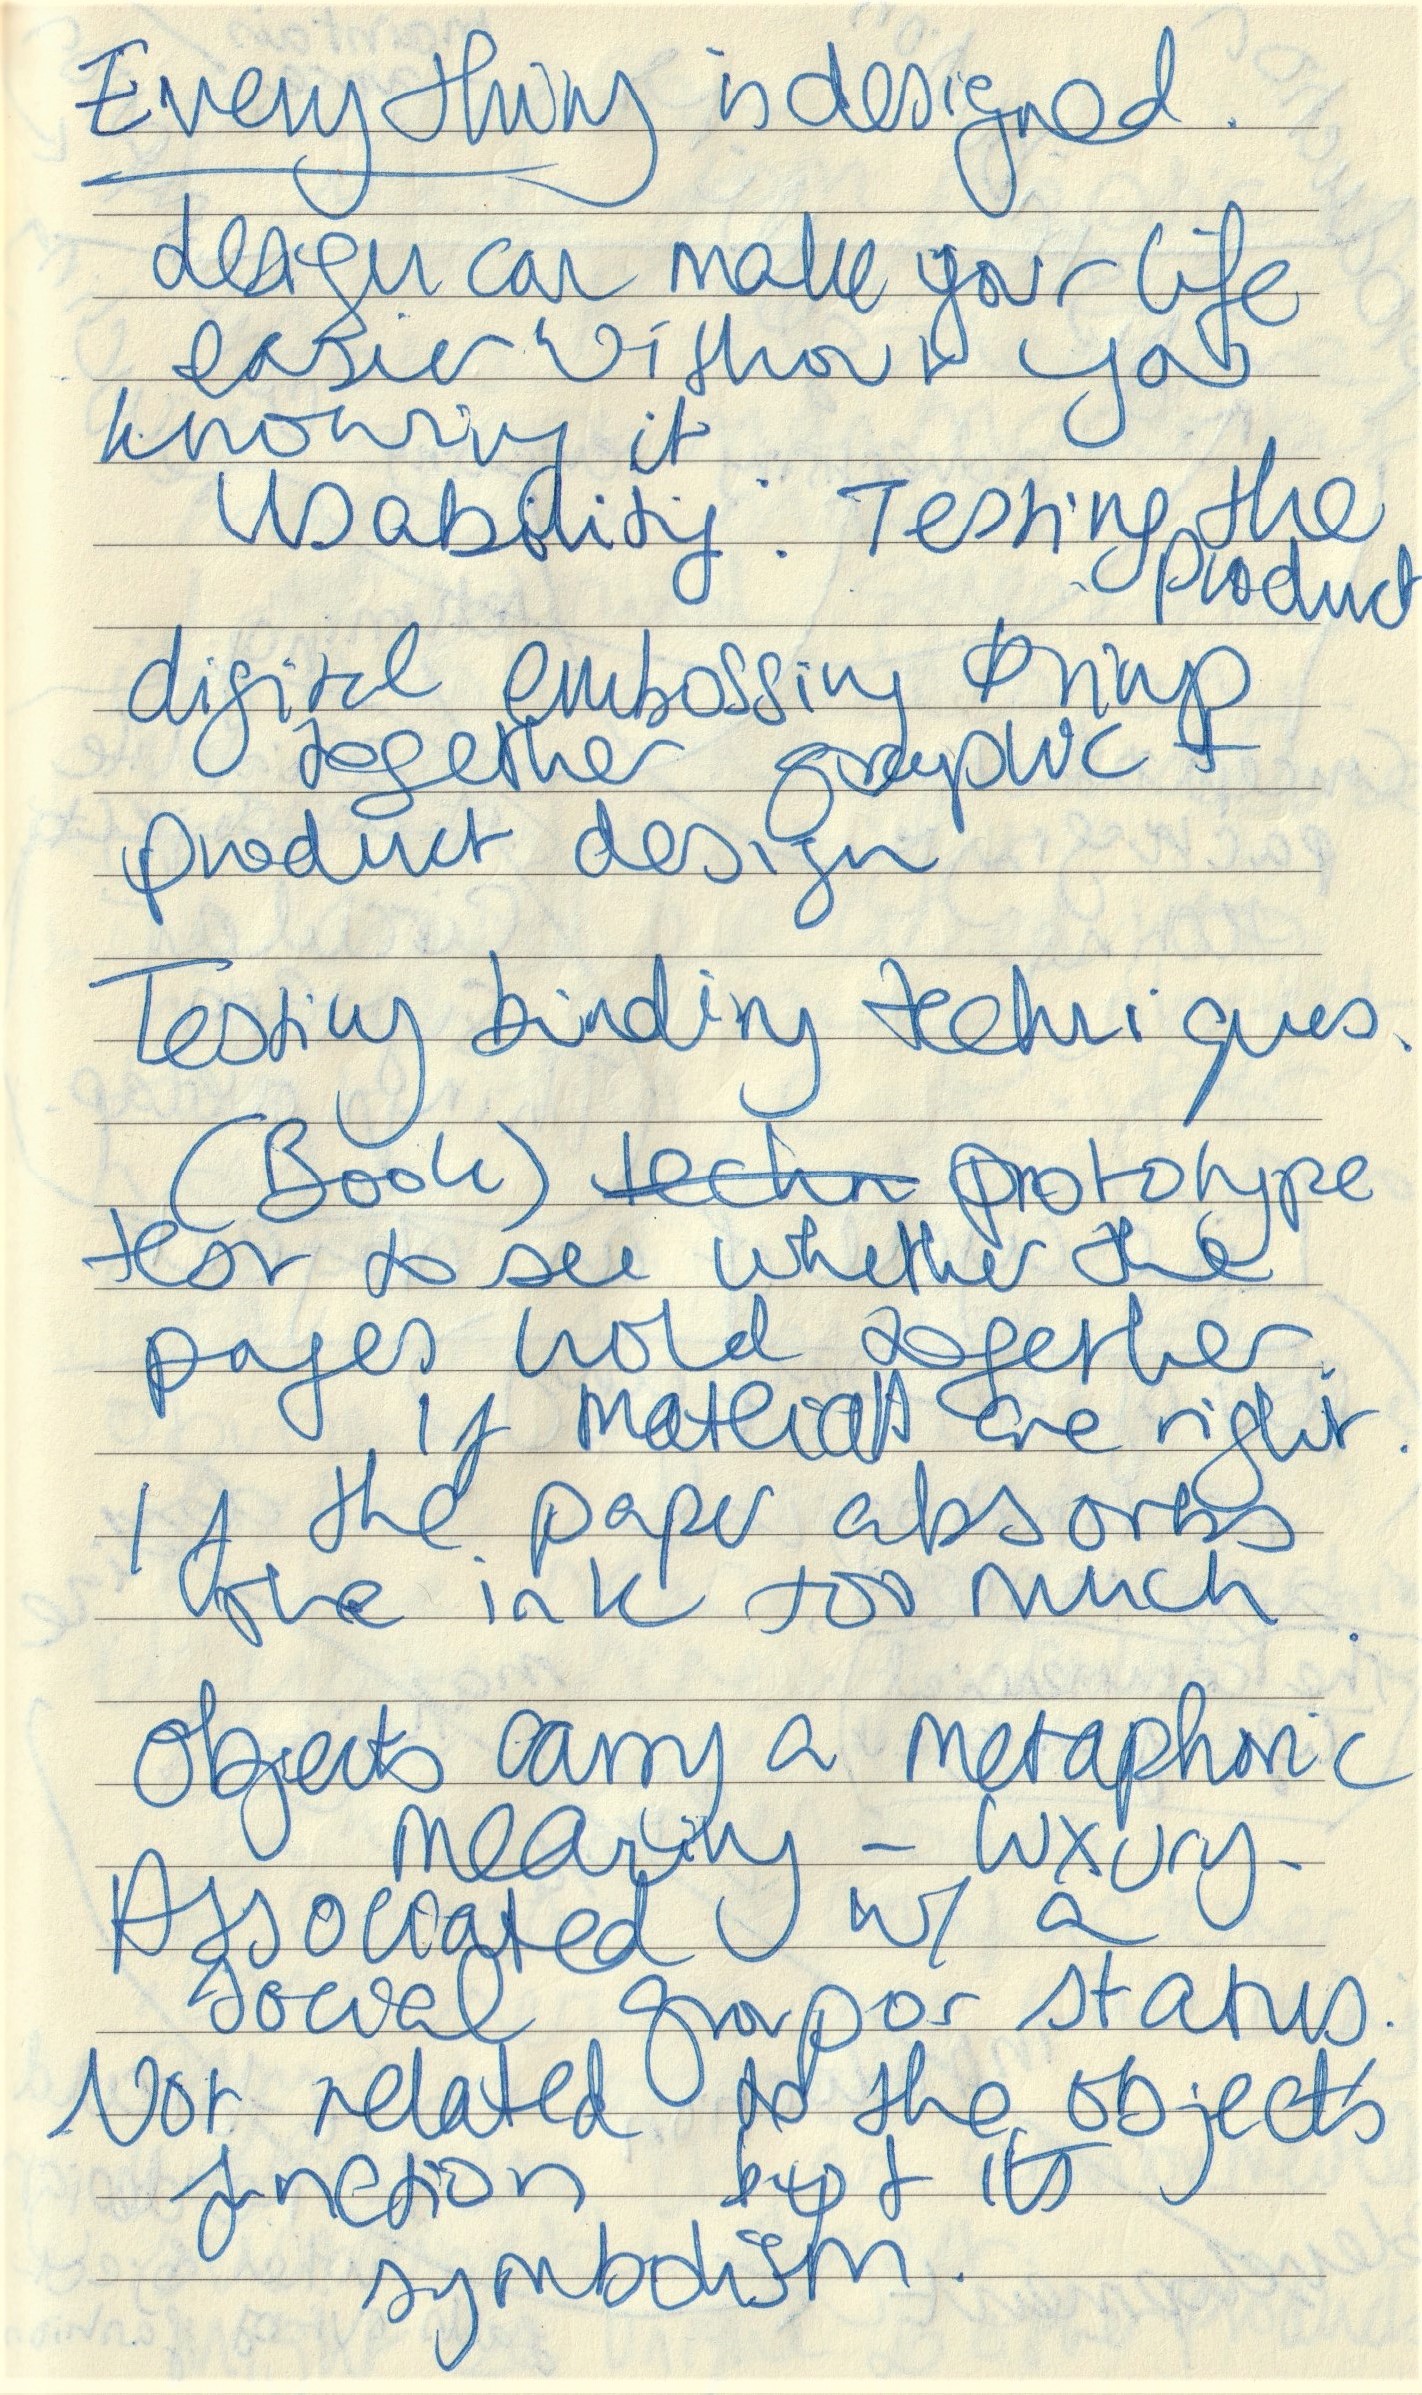 Everything is designed.
design can make your life
easier without you
knowing it
Usability: Testing the
product
digital embossing brings
together graphic +
product design
Testing binding techniques.
(Book) techn prototype
test to see whether the
pages hold together.
If materials are right.
If the paper absorbs
the ink too much.
Objects carry a metaphoric
meaning - luxury -
Associated w/ a
social group or status.
Not related to the objects
function but its
symbolism.